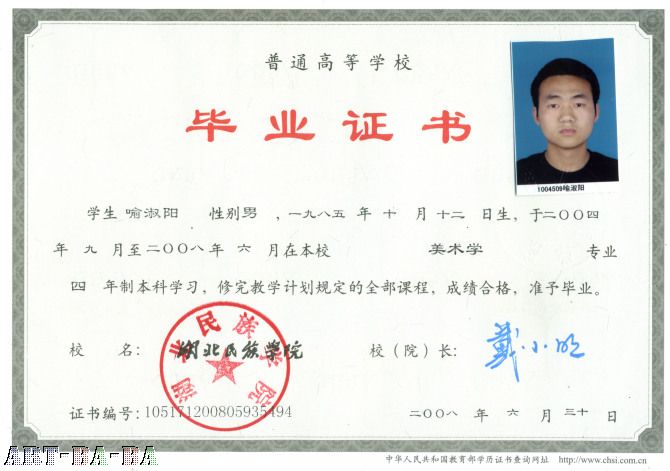 普通高等学校
毕业证书
1004509喻淑阳
学生 喻淑阳 性别男 ,一九八五 年 十 月 十二 日生，于二〇〇四
年 九 月至二〇〇八年 六 月在本校 美术学 专业
四 年制本科学习，修完教学计划规定的全部课程，成绩合格，准予毕业。
校 名： 湖北民族学院 校（院）长： 戴小明
湖北民族学院
证书编号：105171200805935494 二〇〇八 年 六 月 三十 日
ART-BA-BA
中华人民共和国教育部学历证书查询网址 http://www.chsi.com.cn